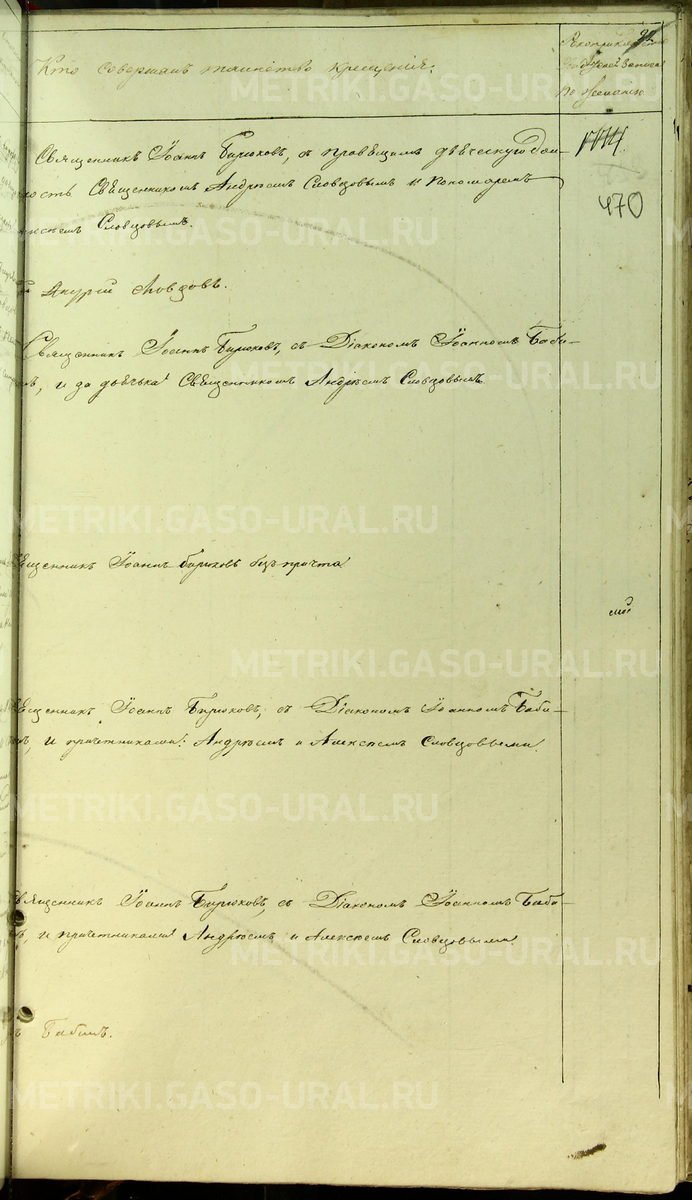 Кто совершалъ таинство крещенія.
Рукоприкладство
по желанію
Священникъ Іоаннъ Бирюковъ, съ правящимъ дьяческую дол-
ность Священникомъ Андреемъ Словцовымъ и Пономаремъ
ексѣемъ Словцовымъ.
470
Андрей Словцовъ.
Священникъ Іоаннъ Бирюковъ, съ Діакономъ Іоанномъ Баби-
ъ, и за дьячька Священникомъ Андреемъ Словцовымъ
вященникъ Іоаннъ Бирюковъ безъ причта
вященникъ Іоаннъ Бирюковъ, съ Діакономъ Іоанномъ Баби-
ъ, и причетниками: Андреемъ и Алексѣемъ Словцовыми.
Священникъ Іоаннъ Бирюковъ, съ Діакономъ Іоанномъ Баби-
ъ, и причетниками Андреемъ и Алексѣемъ Словцовыми.
ъ Бабинъ.
METRIKI.GASO-URAL.RU